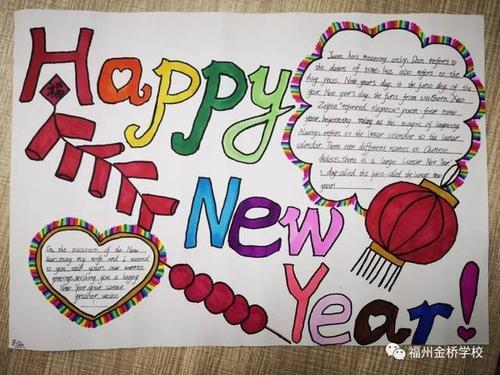 Happy
New
Year!
福
Yuan has meaning only, Dan refers to
the dawn of time but also refers to the
day pass. New year's day is the first day of the
year. New year's day the first from southern Xiao
Ziyun "referred elegance" poem four new
year beginning today as the masses of language
Always refers to the lunar calendar to the lunar
calendar. There are different names in Chinese
dialects, there is a large Lunar New Year
day called the
year!
On the occasion of the New
Year, may my wife and I extend
to you and yours our warmest
greetings, wishing you a happy
New Year, your career
greater success
福州金桥学校